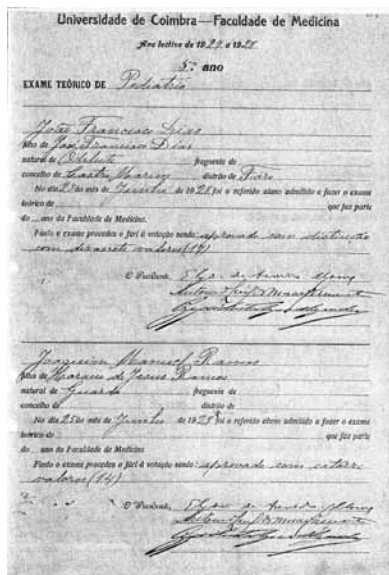 Universidade de Coimbra—Faculdade de Medicina
Ano lectivo de 1927 a 1928
5.º ano
EXAME TEÓRICO DE Pediatria
João Francisco Dias
filho de José Francisco Dias
natural de Odeleite freguesia de
concelho de Castro Marim distrito de Faro
No dia 25 do mês de Junho de 1928 foi o referido aluno admitido a fazer o exame
teórico de que faz parte
do ano da Faculdade de Medicina.
Findo o exame procedeu o júri à votação sendo: aprovado com distinção
com dezanove valores (19)
O Presidente, Elysio de Moura
Joaquim Manuel Ramos
filho de Horacio de Jesus Ramos
natural de Guarda freguesia de
concelho de distrito de
No dia 25 do mês de Junho de 1928 foi o referido aluno admitido a fazer o exame
teórico de que faz parte
do ano da Faculdade de Medicina
Findo o exame procedeu o júri à votação sendo: aprovado com catorze
valores (14)
O Presidente, Elysio de